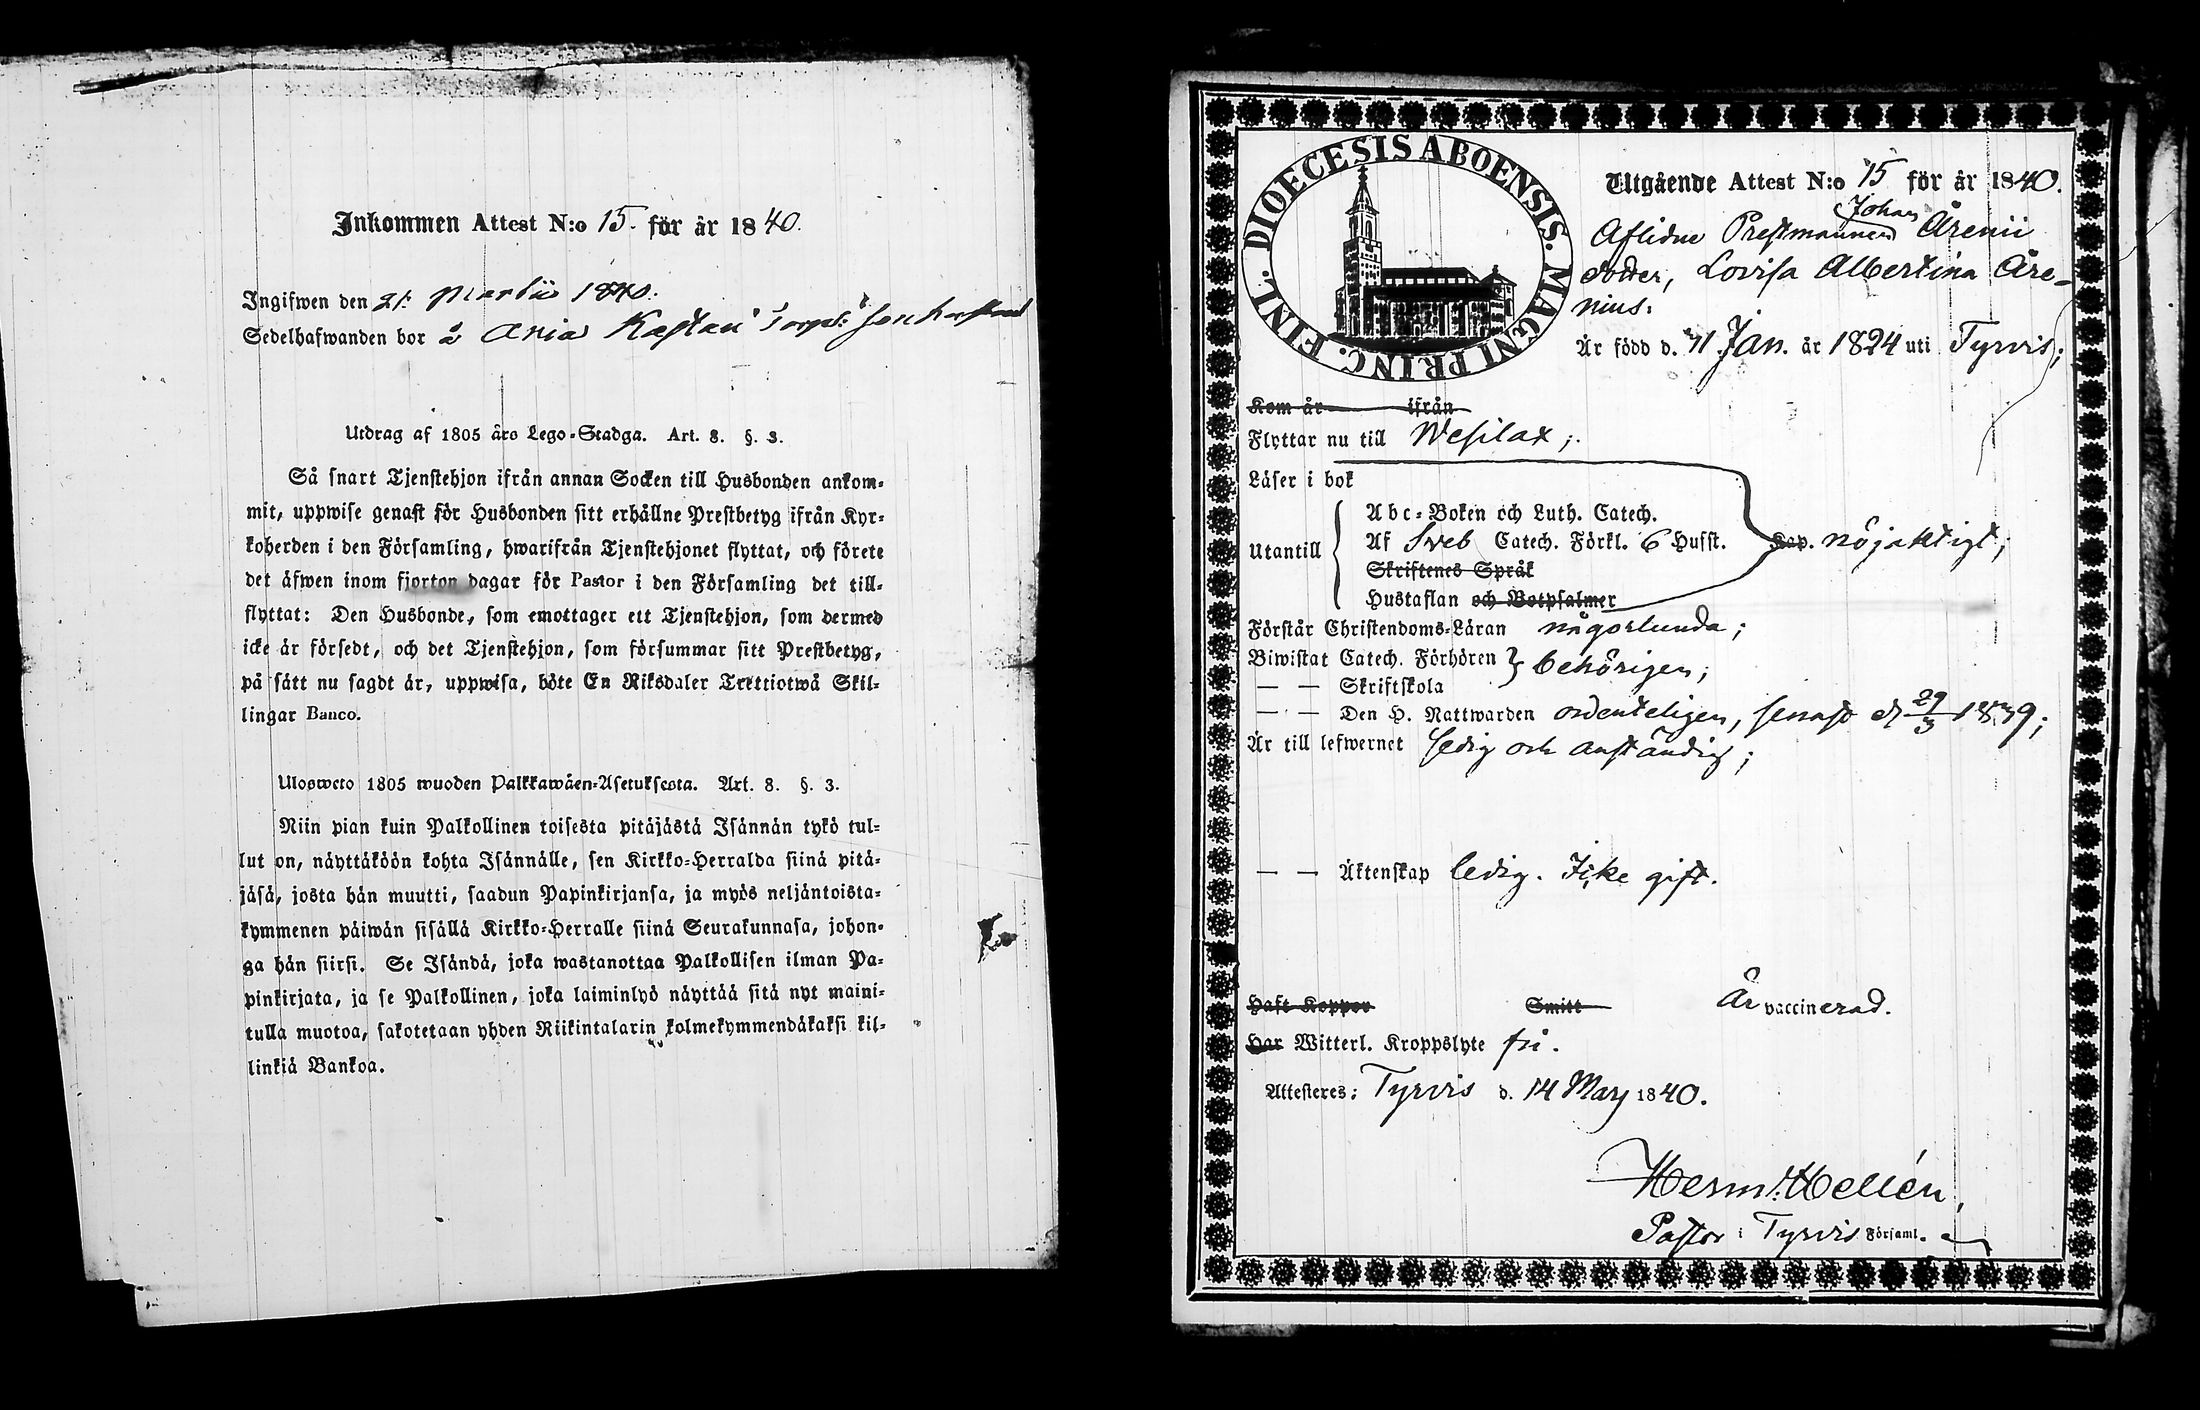 Inkommen Attest N:o 15. för år 1840.
Ingifwen den 21. Martii 1840.
Sedelhafwanden bor å Ania Kastari
Utdrag af 1805 års Lego-Stadga. Art. 8. §. 3.
Så snart Tjenstehjon ifrån annan Socken till Husbonden ankom-
mit, uppwise genast för Husbonden sitt erhållne Prestbetyg ifrån Kyr-
koherden i den Församling, hwarifrån Tjenstehjonet flyttat, och förete
det äfwen inom fjorton dagar för Pastor i den Församling det till-
flyttat: Den Husbonde, som emottager ett Tjenstehjon, som dermed
icke är försedt, och det Tjenstehjon, som försummar sitt Prestbetyg,
på sätt nu sagdt är, uppwisa, böte En Riksdaler Trettiotwå Skil-
lingar Banco.
Ulosweto 1805 wuoden Palkkawäen-Asetuksesta. Art. 8. §. 3.
Niin pian kuin Palkollinen toisesta pitäjästä Isännän tykö tul-
lut on, näyttäköön kohta Isännälle, sen Kirkko-Herralda siinä pitä-
jäsä, josta hän muutti, saadun Papinkirjansa, ja myös neljäntoista-
kymmenen päiwän sisällä Kirkko-Herralle siinä Seurakunnasa, johon-
ga hän siirsi. Se Isändä, joka wastanottaa Palkollisen ilman Pa-
pinkirjata, ja se Palkollinen, joka laiminlyö näyttää sitä nyt maini-
tulla muotoa, sakotetaan yhden Riikintalarin kolmekymmendäkaksi kil-
linkiä Bankoa.
DIOECESIS ABOENSIS. MAGNI PRINC. FINL.
Utgående Attest N:o 15 för år 1840.
Johan
Aflidne Prestmannen Årenii
dotter, Lovisa Albertina Åre-
nius.
Är född d. 31 Jan. år 1824 uti Tyrvis;
Kom år ifrån
Flyttar nu till Wesilax;
Läser i bok
Abc-Boken och Luth. Catech.
Utantill Af Sveb Catech. Förkl. 6 Hufst. Kap. nöjaktigt;
Skriftenes Språk
Hustaflan och Botpsalmer
Förstår Christendoms-Läran någorlunda;
Biwistat Catech. Förhören behörigen;
— — Skriftskola
— — Den H. Nattwarden ordenteligen, senast d. 29/3 1839;
Är till lefwernet sedig och anständig;
— — Äktenskap ledig. Icke gift.
Haft Koppor Smitt Är vaccinerad.
Har Witterl. Kroppslyte fri.
Attesteres: Tyrvis d. 14 Mars 1840.
Herm. Hellén,
Pastor i Tyrvis Församl.